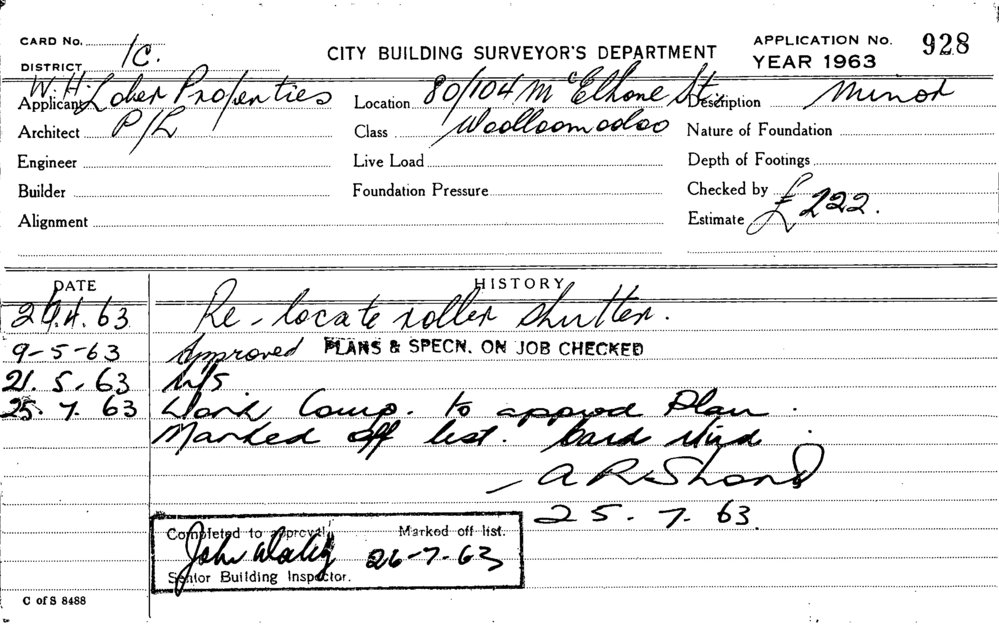 CARD No.
1C.
DISTRICT
CITY BUILDING SURVEYOR'S DEPARTMENT
APPLICATION No. 928
YEAR 1963
W. H.
Applicant Properties
Architect P/L
Engineer
Builder
Alignment
Location 80/104 McElhone St.
Class Woolloomooloo
Live Load
Foundation Pressure
Description Minor
Nature of Foundation
Depth of Footings
Checked by
Estimate £222.
DATE HISTORY
29.4.63 Re-locate roller shutter.
9-5-63 Approved PLANS & SPECN. ON JOB CHECKED
21.5.63 N/S
25.7.63 Work Comp. to approd Plan.
Marked off list. Card
A R Shand
25.7.63.
Completed to approval. Marked off list.
John 26-7-63
Senior Building Inspector.
C of S 8488